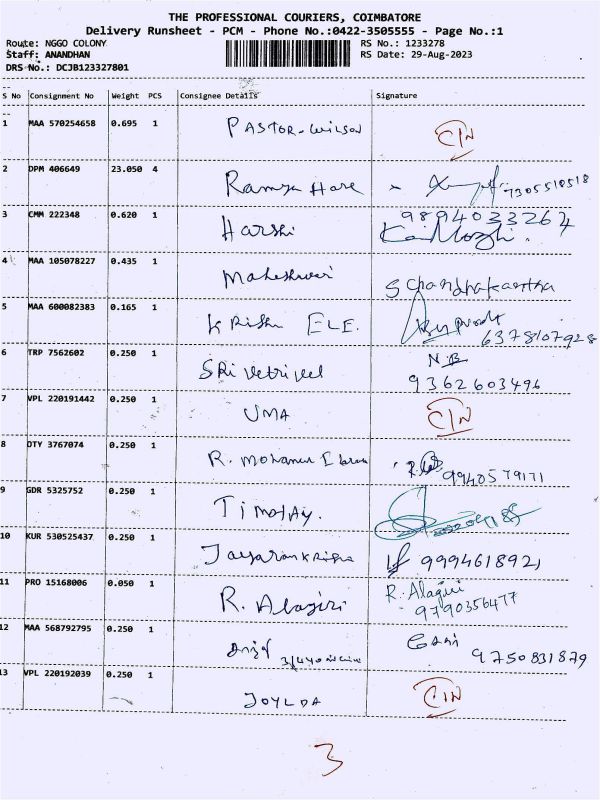 THE PROFESSIONAL COURIERS, COIMBATORE
Delivery Runsheet - PCM - Phone No.:0422-3505555 - Page No.:1
Route: NGGO COLONY RS No.: 1233278
Staff: ANANDHAN RS Date: 29-Aug-2023
DRS No.: DCJB123327801
S No Consignment No Weight PCS Consignee Details Signature
1 MAA 570254658 0.695 1 PASTOR-Wilson C/N
2 DPM 406649 23.050 4 Ramya Hare 7305510518
3 CMM 222348 0.620 1 Harshi 9894033264
KaniMozhi.
4 MAA 105078227 0.435 1 Maheshwari S Chandrakantha
5 MAA 600082383 0.165 1 Krishna ELE. 6378107928
6 TRP 7562602 0.250 1 SRi Vetrivel N.B
9362603496
7 VPL 220191442 0.250 1 UMA C/N
8 OTY 3767074 0.250 1 R. Mohamed 9940579171
9 GDR 5325752 0.250 1 Timothy.
10 KUR 530525437 0.250 1 Jayaramkrishna 9994618921
11 PRO 15168006 0.050 1 R. Alagiri R. Alagiri
9790356477
12 MAA 568792795 0.250 1 9750831879
13 VPL 220192039 0.250 1 JOYLDA C/N
3